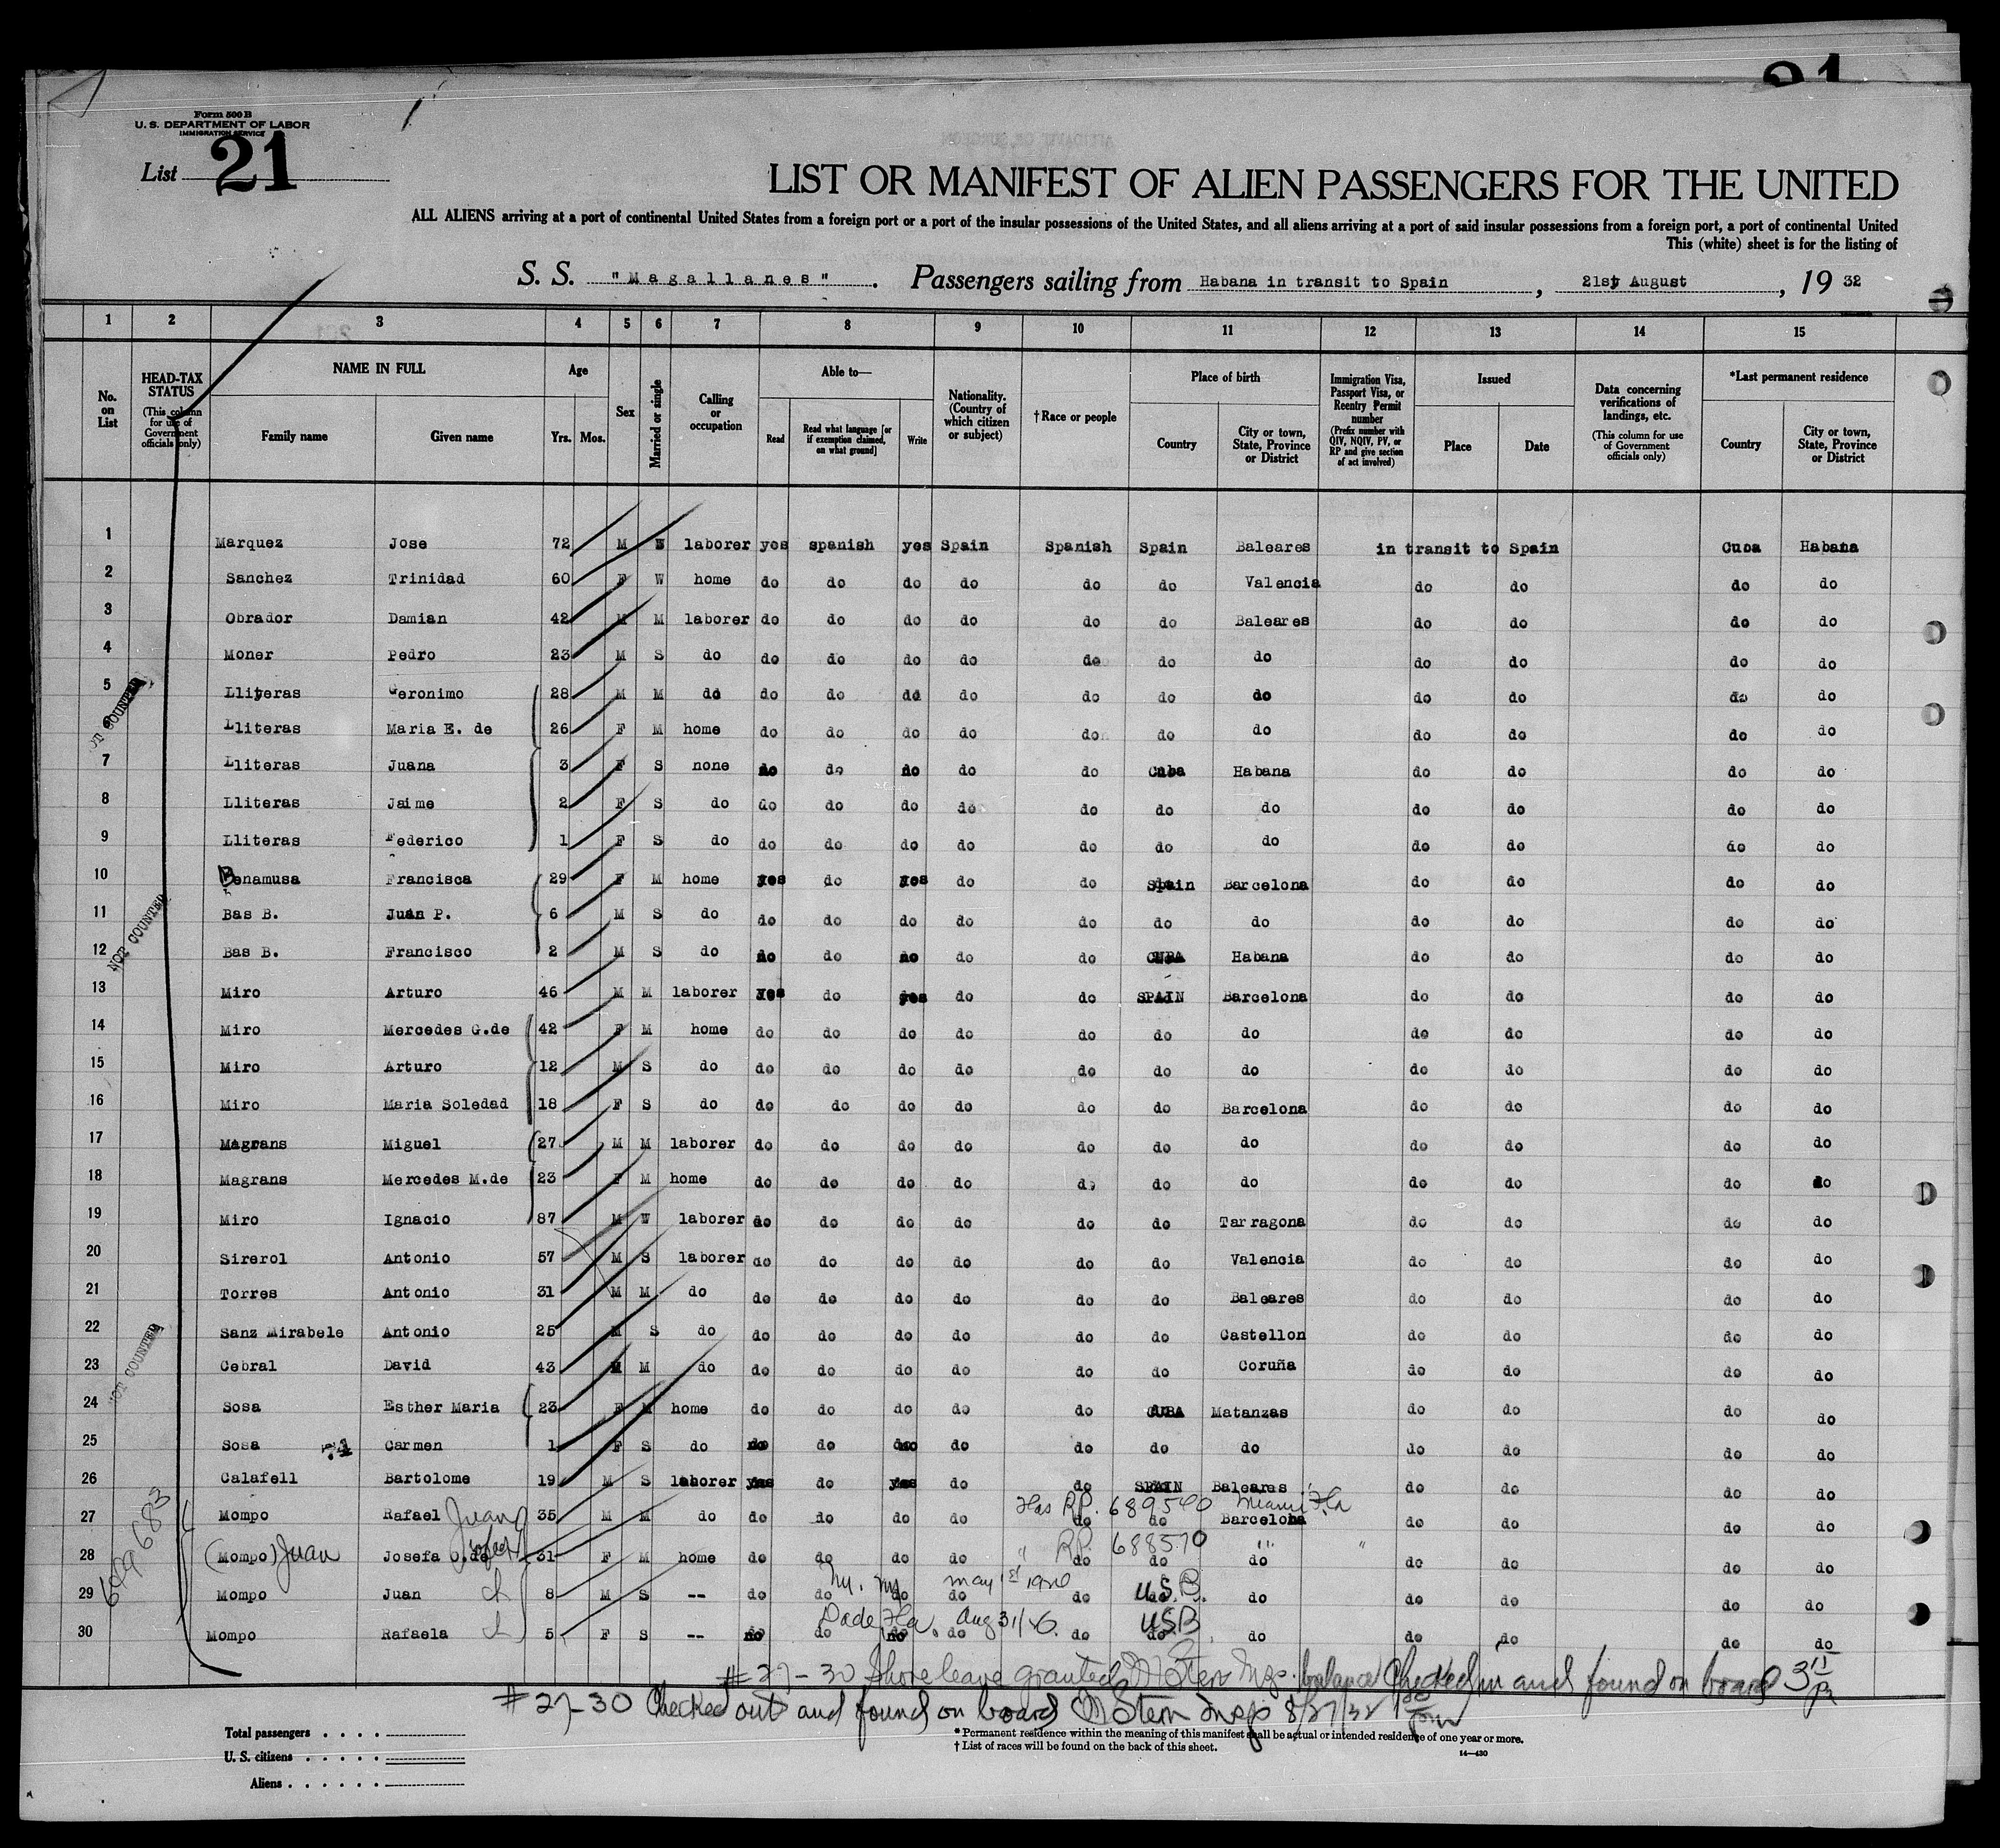 21
Form 500 B
U. S. DEPARTMENT OF LABOR
IMMIGRATION SERVICE
List 21
LIST OR MANIFEST OF ALIEN PASSENGERS FOR THE UNITED
ALL ALIENS arriving at a port of continental United States from a foreign port or a port of the insular possessions of the United States, and all aliens arriving at a port of said insular possessions from a foreign port, a port of continental United
This (white) sheet is for the listing of
S. S. "Magallanes". Passengers sailing from Habana in transit to Spain, 21st August, 19 32
1 2 3 4 5 6 7 8 9 10 11 12 13 14 15
No. on List
HEAD-TAX STATUS (This column for use of Government officials only)
NAME IN FULL
Family name Given name
Age
Yrs. Mos.
Sex
Married or single
Calling or occupation
Able to—
Read Read what language [or if exemption claimed, on what ground] Write
Nationality. (Country of which citizen or subject)
†Race or people
Place of birth
Country City or town, State, Province or District
Immigration Visa, Passport Visa, or Reentry Permit number (Prefix number with QIV, NQIV, PV, or RP and give section of act involved)
Issued
Place Date
Data concerning verifications of landings, etc. (This column for use of Government officials only)
*Last permanent residence
Country City or town, State, Province or District
1 Marquez Jose 72 M W laborer yes spanish yes Spain Spanish Spain Baleares in transit to Spain Cuba Habana
2 Sanchez Trinidad 60 F W home do do do do do do Valencia do do do do
3 Obrador Damian 42 M M laborer do do do do do do Baleares do do do do
4 Moner Pedro 23 M S do do do do do do do do do do do do
5 Lliteras Geronimo 28 M M do do do do do do do do do do do do
Lliteras Maria E. de 26 F M home do do do do do do do do do do do
7 Lliteras Juana 3 F S none no do no do do Cuba Habana do do do do
8 Lliteras Jaime 2 F S do do do do do do do do do do do do
9 Lliteras Federico 1 F S do do do do do do do do do do do do
10 Benamusa Francisca 29 F M home yes do yes do do Spain Barcelona do do do do
11 Bas B. Juan P. 6 M S do do do do do do do do do do do do
12 Bas B. Francisco 2 M S do no do no do do CUBA Habana do do do do
13 Miro Arturo 46 M M laborer yes do yes do do SPAIN Barcelona do do do do
14 Miro Mercedes G.de 42 F M home do do do do do do do do do do do
15 Miro Arturo 12 M S do do do do do do do do do do do do
16 Miro Maria Soledad 18 F S do do do do do do do Barcelona do do do do
17 Magrans Miguel 27 M M laborer do do do do do do do do do do do
18 Magrans Mercedes M.de 23 F M home do do do do do do do do do do do
19 Miro Ignacio 87 M W laborer do do do do do do Tarragona do do do do
20 Sirerol Antonio 57 M S laborer do do do do do do Valencia do do do do
21 Torres Antonio 31 M M do do do do do do do Baleares do do do do
22 Sanz Mirabele Antonio 25 M S do do do do do do do Castellon do do do do
23 Cebral David 43 M M do do do do do do do Coruña do do do do
24 Sosa Esther Maria 23 F M home do do do do do CUBA Matanzas do do do do
25 Sosa 74 Carmen 1 F S do no do no do do do do do do do do
26 Calafell Bartolome 19 M S laborer yes do yes do do SPAIN Baleares do do do do
Has RP. 689540 Miami Fla
27 Mompo Rafael Juan 35 M M do do do do do do do Barcelona do do do do
" RP. 688570 " "
28 (Mompo) Juan Josefa J.de 31 F M home do do do do do do do do do do do
N.Y. N.Y. May 1st 1920 U.S.B.
29 Mompo Juan ch 8 M S -- do do do do do do do do do do do
Dade Fla. Aug 31/26. USB
30 Mompo Rafaela ch 5 F S -- no do no do do do do do do do do
NOT COUNTED
NOT COUNTED
NOT COUNTED
699683
#27-30 Shore leave granted Stern Insp. balance checked in and found on board
#27-30 Checked out and found on board Stern Insp 8/27/32
Total passengers
U. S. citizens
Aliens
*Permanent residence within the meaning of this manifest shall be actual or intended residence of one year or more.
†List of races will be found on the back of this sheet.
14—430